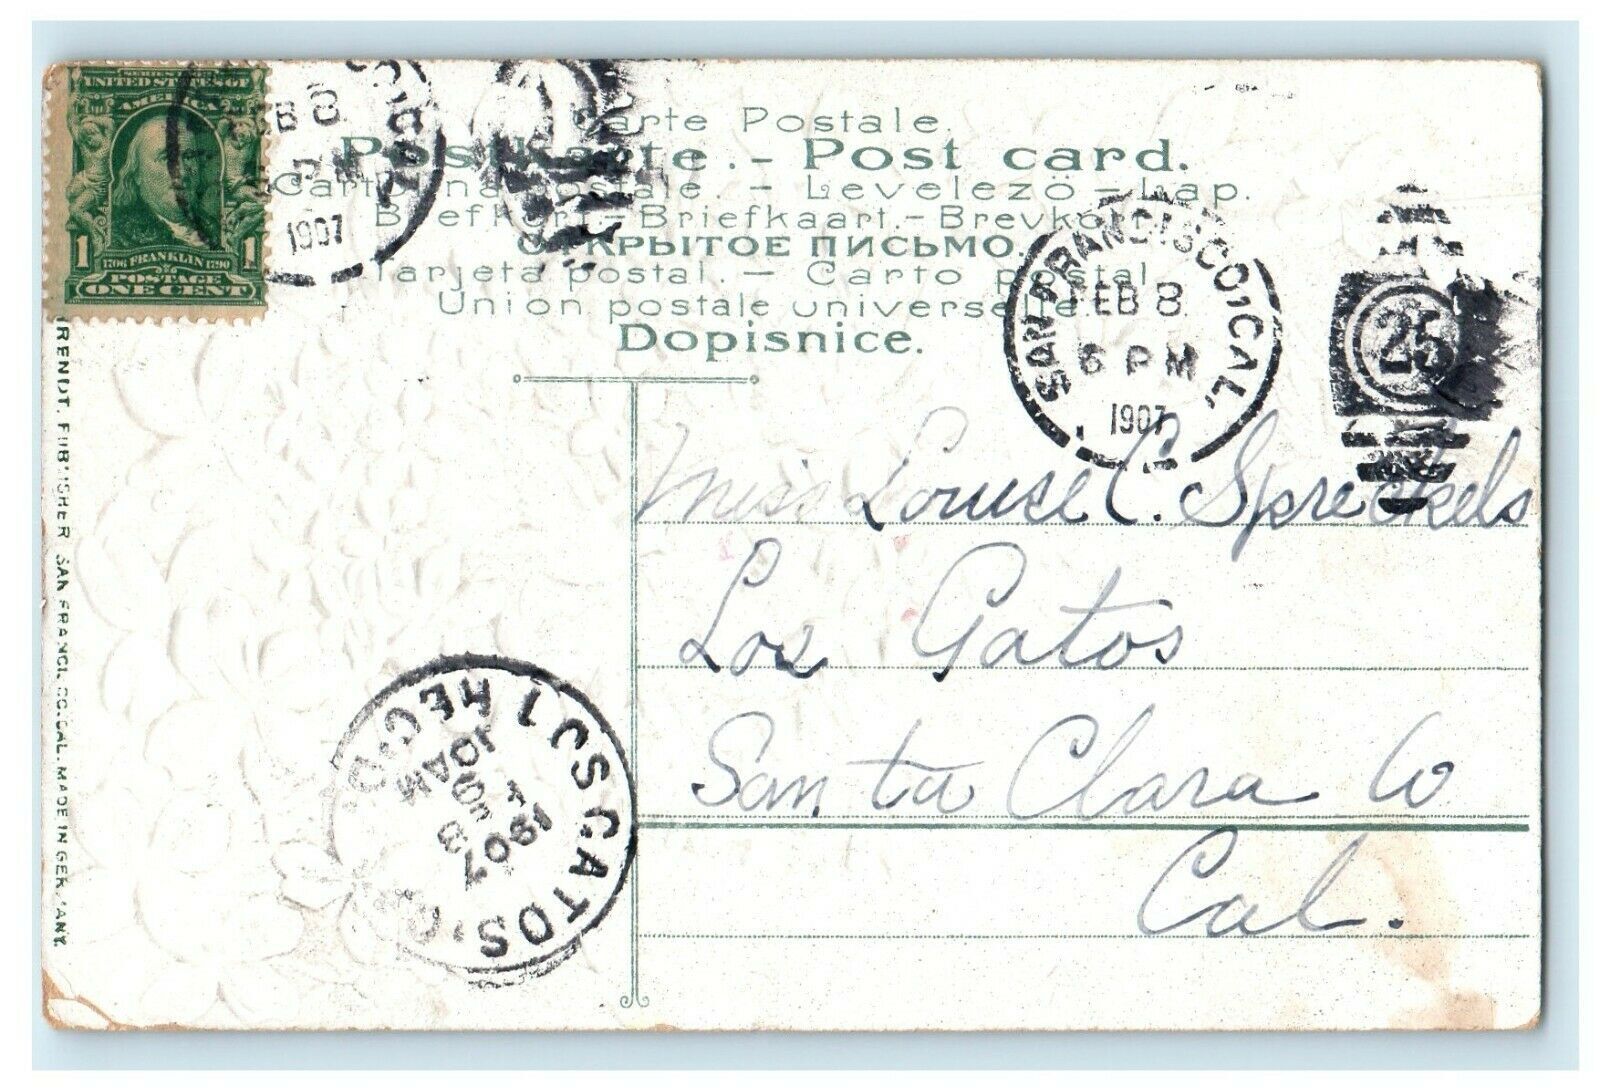 SERIES OF 1902
UNITED STATES OF
AMERICA
1 1
1706 FRANKLIN 1790
POSTAGE
ONE CENT
FEB 8
1907
Carte Postale.
Postkarte. - Post card.
Cartolina postale. - Levelezö - Lap.
Brefkort - Briefkaart. - Brevkort.
ОТКРЫТОЕ ПИСЬМО.
Tarjeta postal. - Carto postal.
Union postale universelle.
Dopisnice.
SAN FRANCISCO, CAL.
FEB 8
6 PM
1907
25
Miss Louise C. Spreckels
Los Gatos
Santa Clara Co
Cal.
LOS GATOS,
REC'D.
10AM
1907
PUBLISHER SAN FRANCISCO, CAL. MADE IN GERMANY.